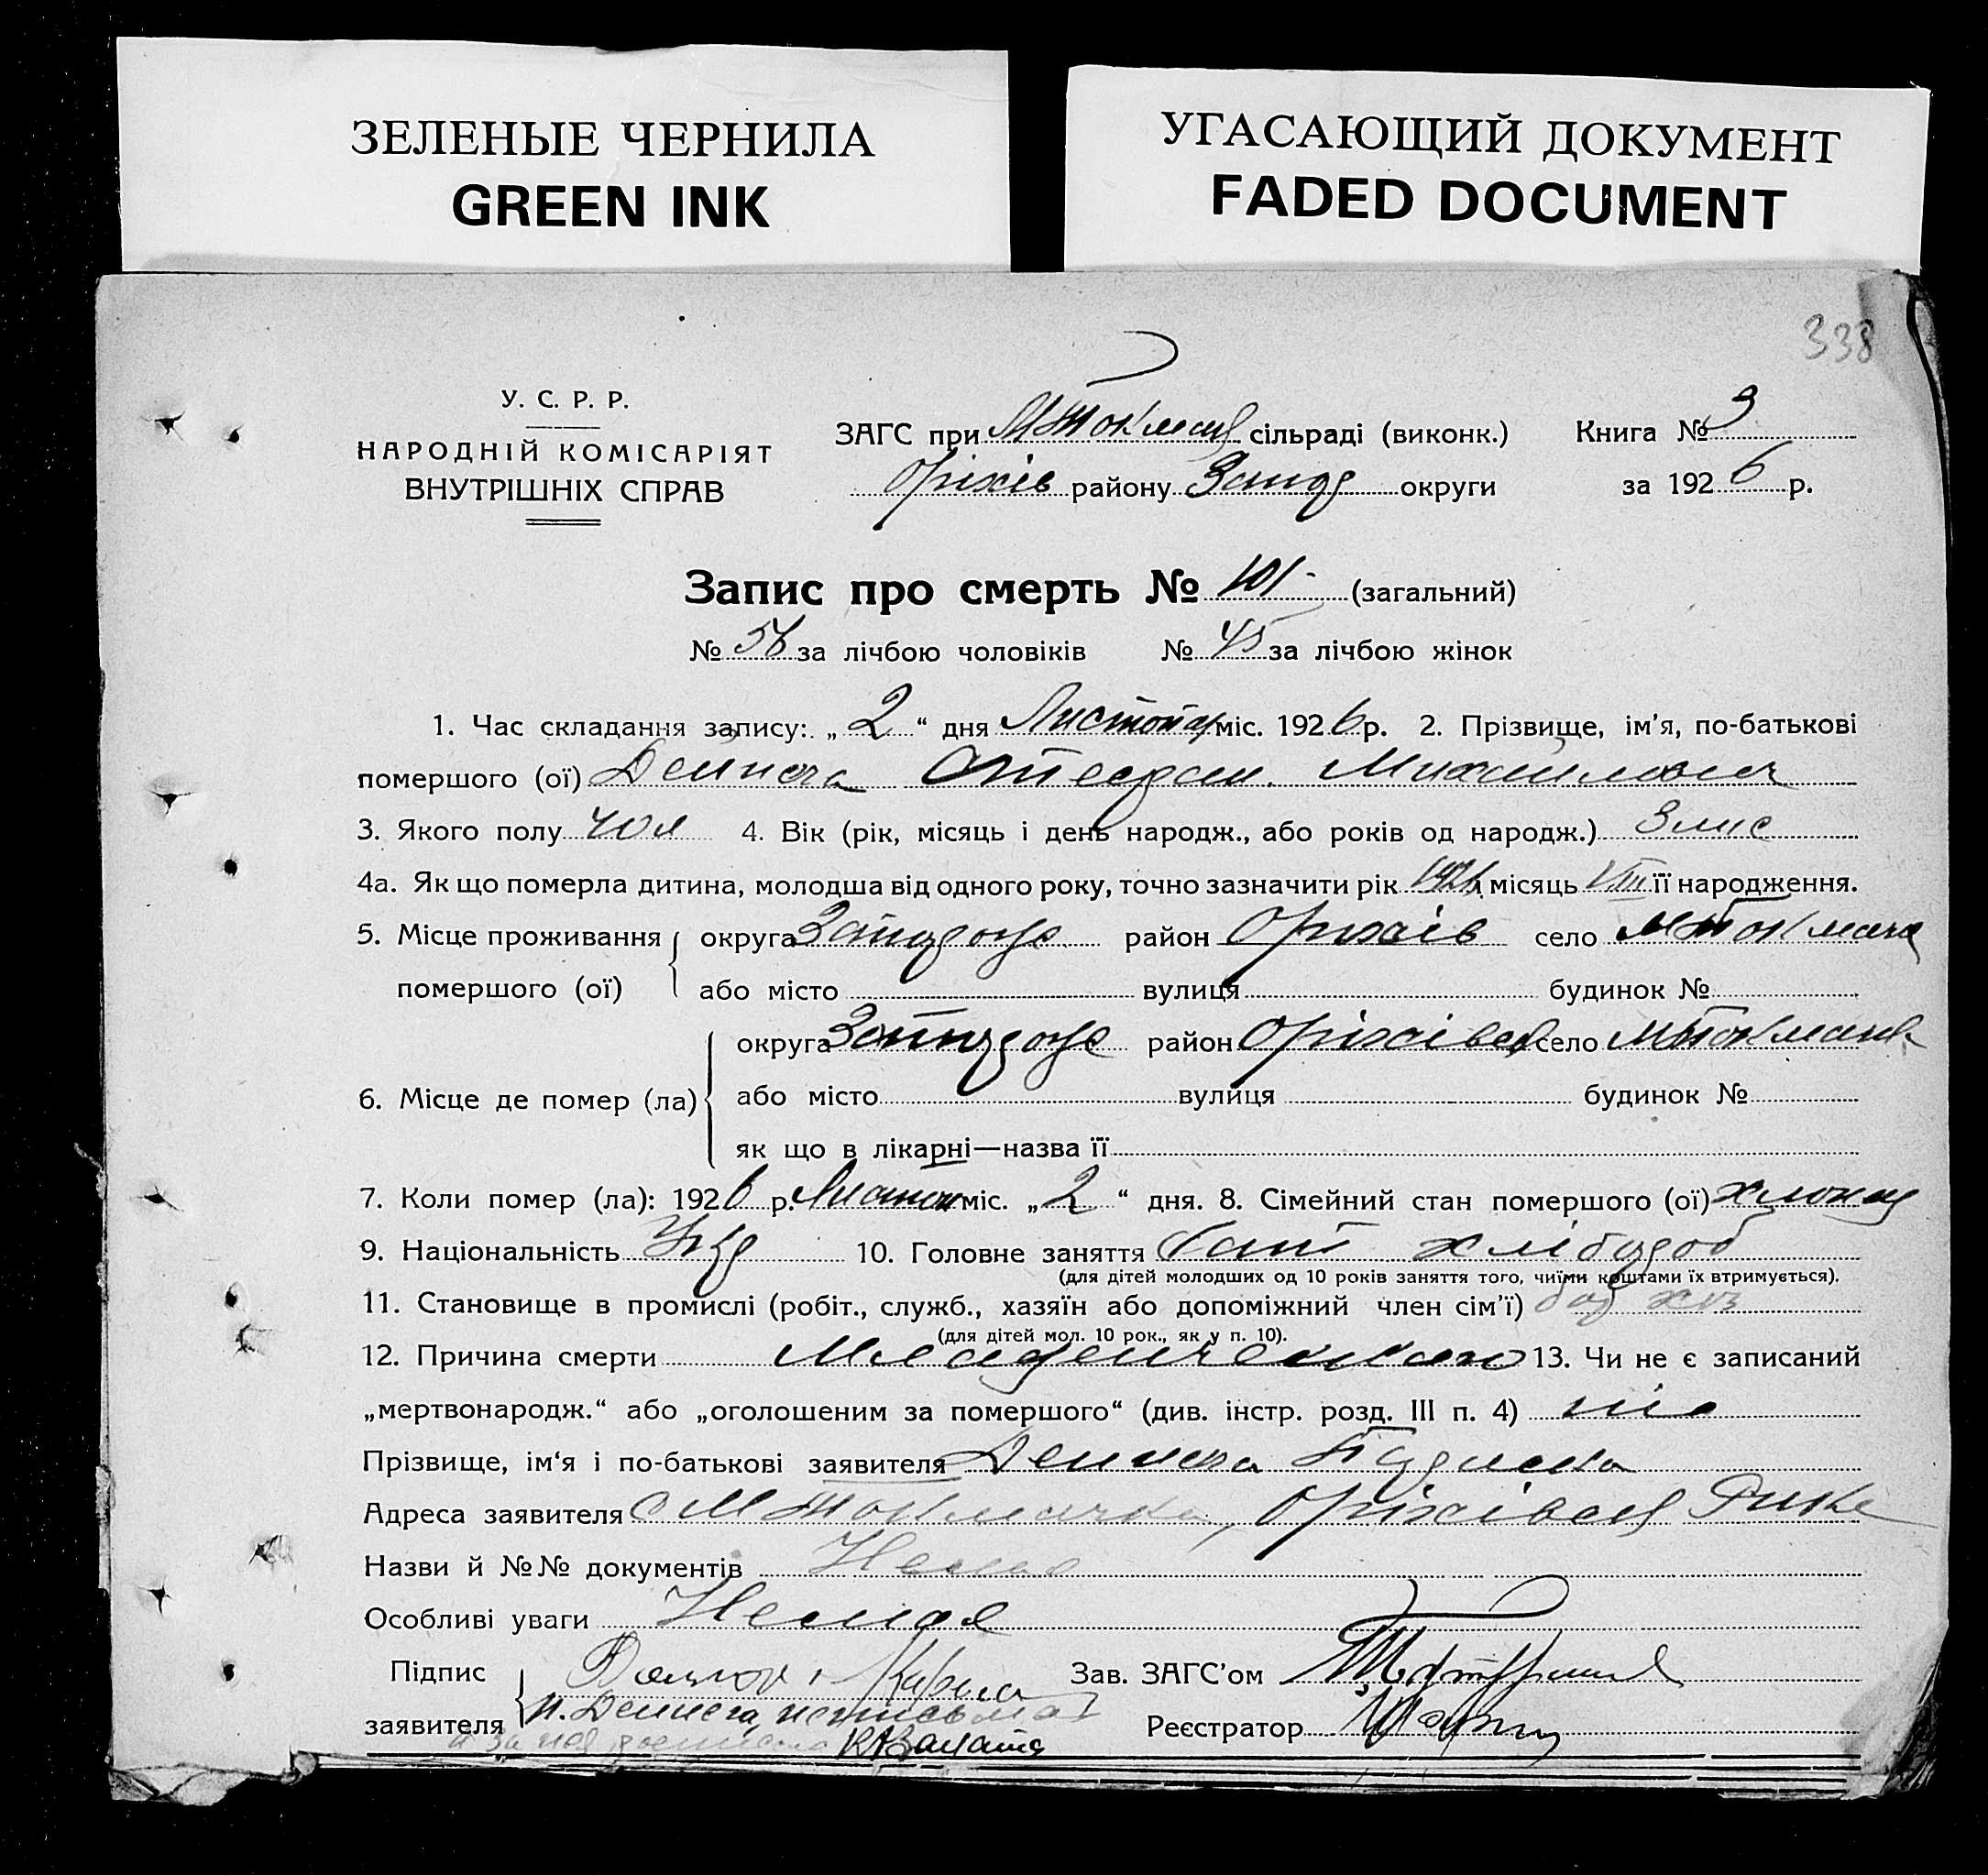 ЗЕЛЕНЫЕ ЧЕРНИЛА
GREEN INK
УГАСАЮЩИЙ ДОКУМЕНТ
FADED DOCUMENT
338
У. С. Р. Р.
НАРОДНІЙ КОМІСАРІЯТ
ВНУТРІШНІХ СПРАВ
ЗАГС при М Токмац сільраді (виконк.) Книга № 3
Оріхів району Запор округи за 1926 р.
Запис про смерть № 101 (загальний)
№ 56 за лічбою чоловіків № 45 за лічбою жінок
1. Час складання запису: „2“ дня Листопад міс. 1926 р. 2. Прізвище, ім'я, по-батькові
помершого (ої) Стефан Михайлович
3. Якого полу чол 4. Вік (рік, місяць і день народж., або років од народж.) 3 міс
4а. Як що померла дитина, молодша від одного року, точно зазначити рік 1926 місяць VIII її народження.
5. Місце проживання округа район Оріхів село М Токмачка
помершого (ої) або місто вулиця будинок №
округа район Оріхівск село М Токмачк
6. Місце де помер (ла) або місто вулиця будинок №
як що в лікарні—назва її
7. Коли помер (ла): 1926 р. Листоп міс. „2“ дня. 8. Сімейний стан помершого (ої)
9. Національність Укр 10. Головне заняття хлібороб
(для дітей молодших од 10 років заняття того, чиїми коштами їх втримується).
11. Становище в промислі (робіт., служб., хазяїн або допоміжний член сім'ї)
(для дітей мол. 10 рок., як у п. 10).
12. Причина смерти 13. Чи не є записаний
„мертвонародж.“ або „оголошеним за помершого“ (див. інстр. розд. III п. 4) ні
Прізвище, ім'я і по-батькові заявителя
Адреса заявителя с М Токмачка, Оріхівск
Назви й №№ документів Немає
Особливі уваги Немає
Підпис Зав. ЗАГС'ом
заявителя Реєстратор